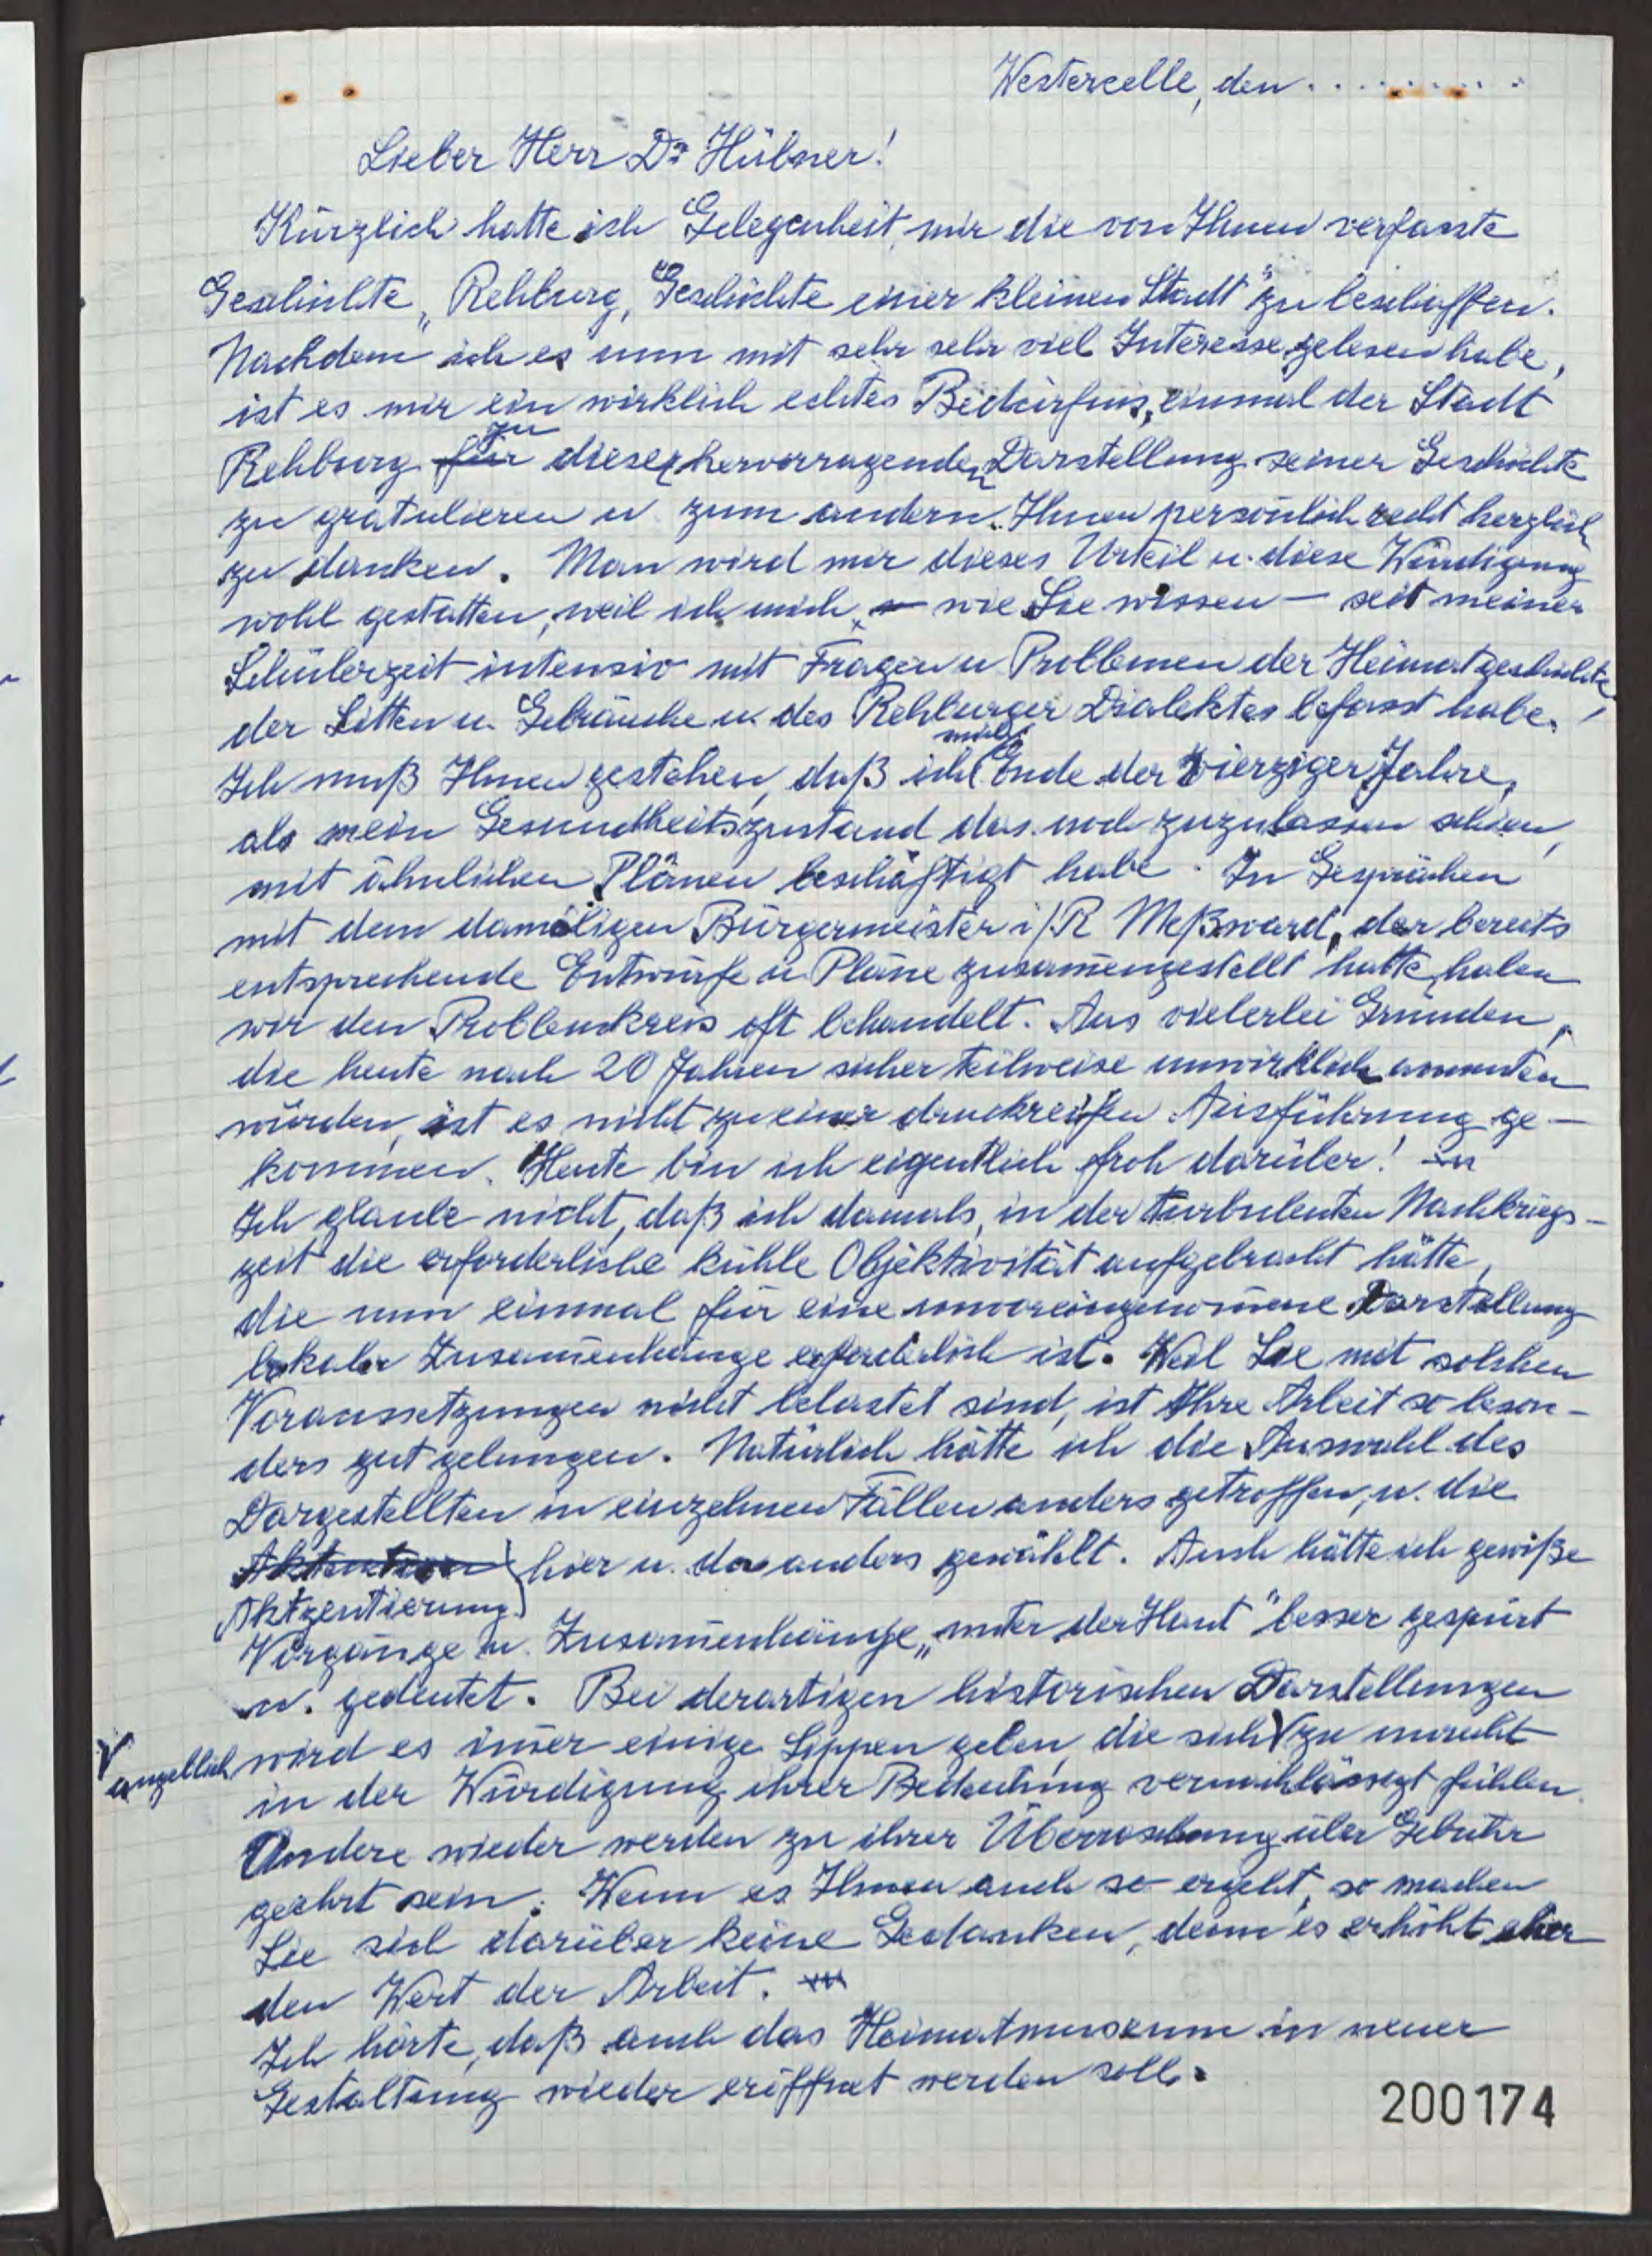 Westercelle, den..........
Lieber Herr Dr Hübner!
Kürzlich hatte ich Gelegenheit, mir die von Ihnen verfasste
Geschichte „Rehburg, Geschichte einer kleinen Stadt" zu beschaffen.
Nachdem ich es nun mit sehr sehr viel Interesse gelesen habe,
ist es mir ein wirklich echtes Bedürfnis, einmal der Stadt
zu
Rehburg für dieser hervorragenden Darstellung seiner Geschichte
zu gratulieren u zum andern Ihnen persönlich recht herzlich
zu danken. Man wird mir dieses Urteil u. diese Würdigung
wohl gestatten, weil ich mich – wie Sie wissen – seit meiner
Schülerzeit intensiv mit Fragen u Problemen der Heimatgeschichte,
der Sitten u. Gebräuche u. des Rehburger Dialektes befasst habe.
mich
Ich muß Ihnen gestehen, daß ich Ende der vierziger Jahre,
als mein Gesundheitszustand das noch zuzulassen schien,
mit ähnlichen Plänen beschäftigt habe. In Gesprächen
mit dem damaligen Bürgermeister i/R Meßwarb, der bereits
entsprechende Entwürfe u Pläne zusam̄engestellt hatte, haben
wir den Problemkreis oft behandelt. Aus vielerlei Gründen,
die heute nach 20 Jahren sicher teilweise unwirklich anmuten
würden, ist es nicht zu einer druckreifen Ausführung ge-
kommen. Heute bin ich eigentlich froh darüber!
Ich glaube nicht, daß ich damals, in der turbulenten Nachkriegs-
zeit die erforderliche kühle Objektivität aufgebracht hätte,
die nun einmal für eine unvoreingenom̄ene Darstellung
lokaler Zusam̄enhänge erforderlich ist. Weil Sie mit solchen
Voraussetzungen nicht belastet sind, ist Ihre Arbeit so beson-
ders gut gelungen. Natürlich hätte ich die Auswahl des
Dargestellten in einzelnen Fällen anders getroffen, u. die
hier u. da anders gewählt. Auch hätte ich gewiße
Aktzentierung
Vorgänge u. Zusam̄enhänge „unter der Haut" besser gespürt
u. gedeutet. Bei derartigen historischen Darstellungen
angeblich wird es im̄er einige Sippen geben, die sich zu unrecht
in der Würdigung ihrer Bedeutung vernachlässigt fühlen.
Andere wieder werden zu ihrer Überraschung über Gebühr
geehrt sein. Wenn es Ihnen auch so ergeht, so machen
Sie sich darüber keine Gedanken, denn es erhöht eher
den Wert der Arbeit.
Ich hörte, daß auch das Heimatmuseum in neuer
Gestaltung wieder eröffnet werden soll.
200174